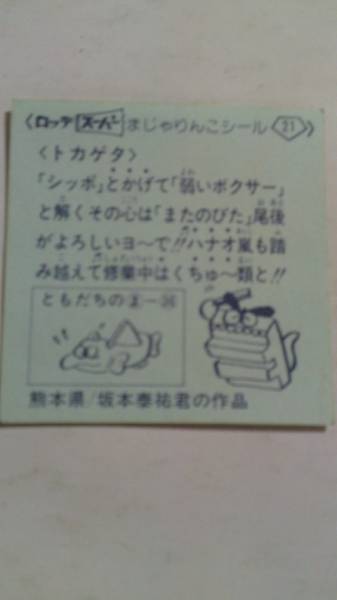 〈ロッテ スーパー まじゃりんこシール 21〉
〈トカゲタ〉
「シッポ」とかげて「弱いボクサー」
と解くその心は「またのびた」尾後
がよろしいヨ〜で!!ハナオ嵐も踏
み越えて修業中はくちゅ〜類と!!
ともだちの
熊本県/坂本泰祐君の作品